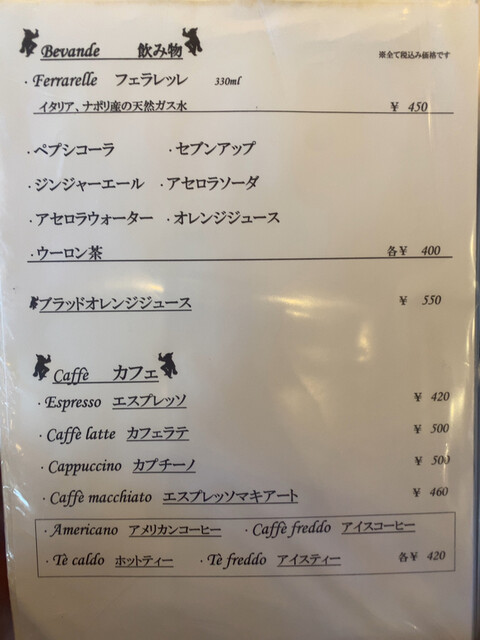 Bevande 飲み物 ※全て税込み価格です
・Ferrarelle フェラレッレ 330ml
イタリア、ナポリ産の天然ガス水 ¥ 450
・ペプシコーラ ・セブンアップ
・ジンジャーエール ・アセロラソーダ
・アセロラウォーター ・オレンジジュース
・ウーロン茶 各¥ 400
ブラッドオレンジジュース ¥ 550
Caffè カフェ
・Espresso エスプレッソ ¥ 420
・Caffè latte カフェラテ ¥ 500
・Cappuccino カプチーノ ¥ 500
・Caffè macchiato エスプレッソマキアート ¥ 460
・Americano アメリカンコーヒー ・Caffè freddo アイスコーヒー
・Tè caldo ホットティー ・Tè freddo アイスティー 各¥ 420